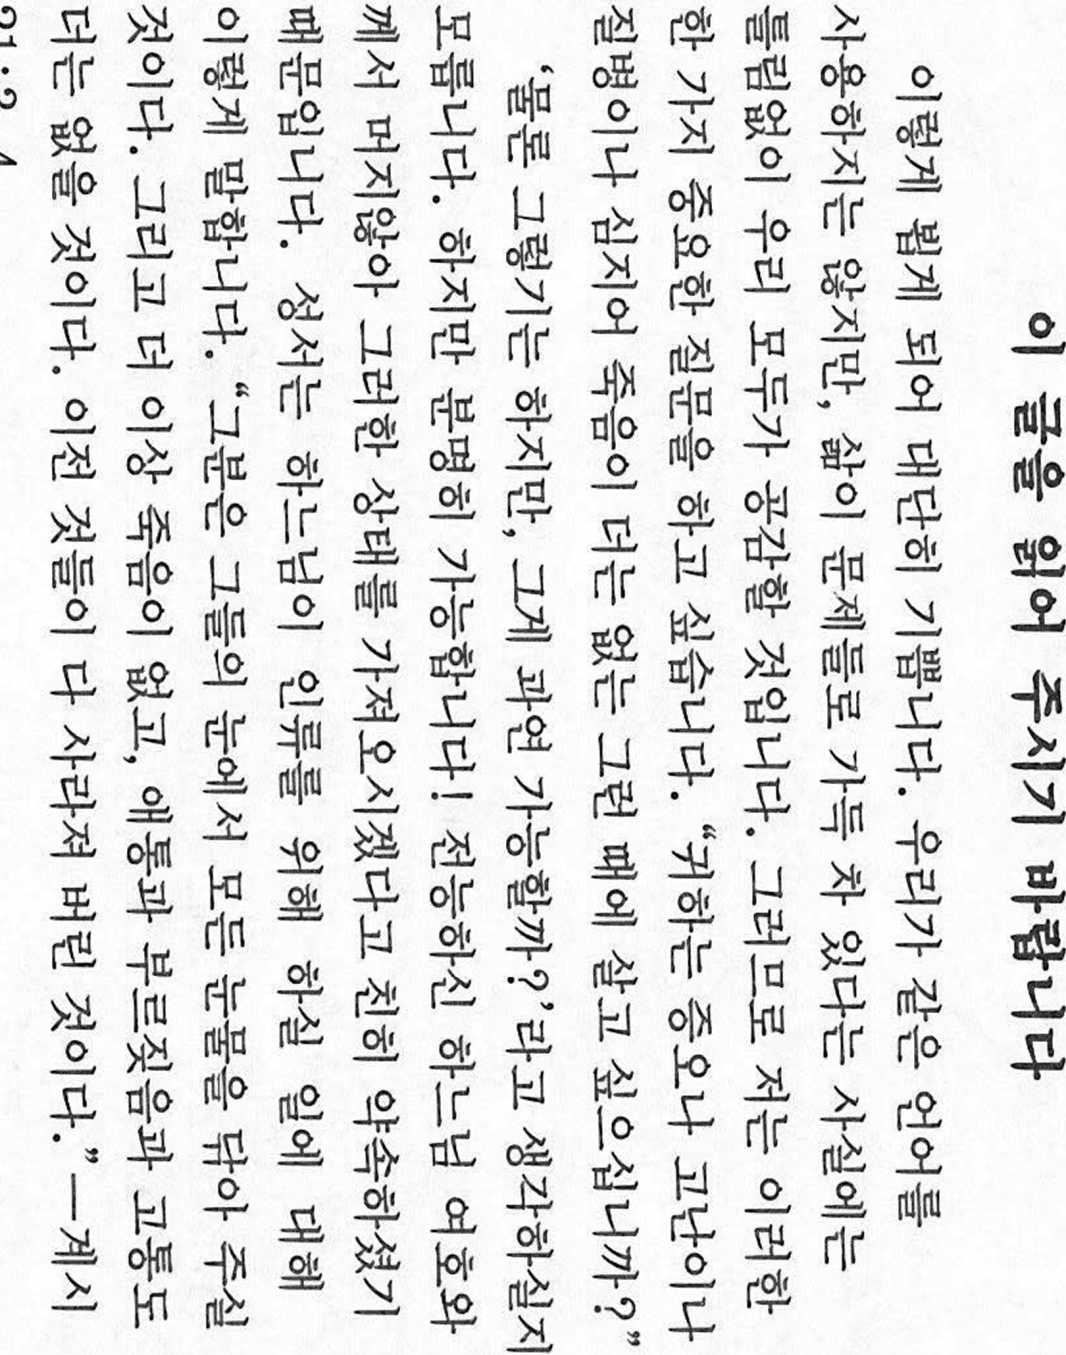 이 글을 읽어 주시기 바랍니다
이렇게 뵙게 되어 대단히 기쁩니다. 우리가 같은 언어를
사용하지는 않지만, 삶이 문제들로 가득 차 있다는 사실에는
틀림없이 우리 모두가 공감할 것입니다. 그러므로 저는 이러한
한 가지 중요한 질문을 하고 싶습니다. “귀하는 증오나 고난이나
질병이나 심지어 죽음이 더는 없는 그런 때에 살고 싶으십니까?”
‘물론 그렇기는 하지만, 그게 과연 가능할까?’라고 생각하실지
모릅니다. 하지만 분명히 가능합니다! 전능하신 하느님 여호와
께서 머지않아 그러한 상태를 가져오시겠다고 친히 약속하셨기
때문입니다. 성서는 하느님이 인류를 위해 하실 일에 대해
이렇게 말합니다. “그분은 그들의 눈에서 모든 눈물을 닦아 주실
것이다. 그리고 더 이상 죽음이 없고, 애통과 부르짖음과 고통도
더는 없을 것이다. 이전 것들이 다 사라져 버린 것이다.”—계시
21:3, 4